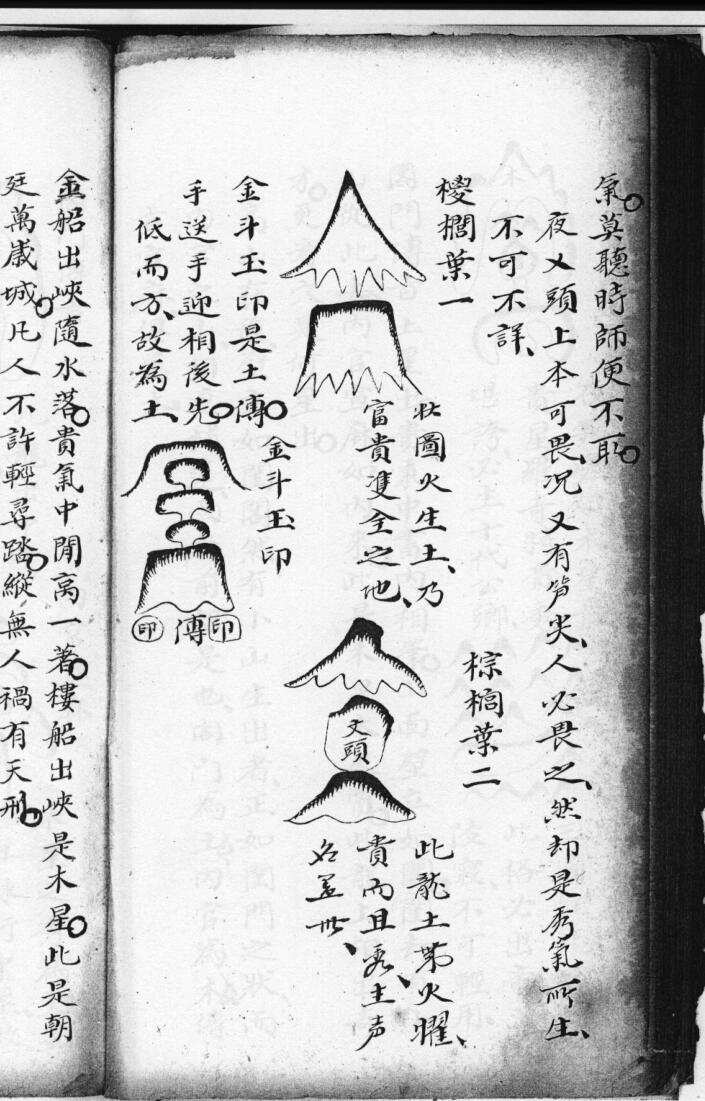 氣莫聽時師便不取
夜乂頭上本可畏況又有笋尖、人必畏之、然却是秀氣所生、
不可不詳、
椶櫚葉一
此圖火生土、乃
富貴雙全之地、
棕櫚葉二
文頭
此龍土帶火曜、
貴而且秀、主声
名盖世、
金斗玉印
金斗玉印是土傳
手送手迎相後先
低而方、故為土、
印
傳
印
金船出峽隨水落貴氣中閒高一著樓船出峽是木星此是朝
廷萬歲城凡人不許輕尋踏縱無人禍有天刑